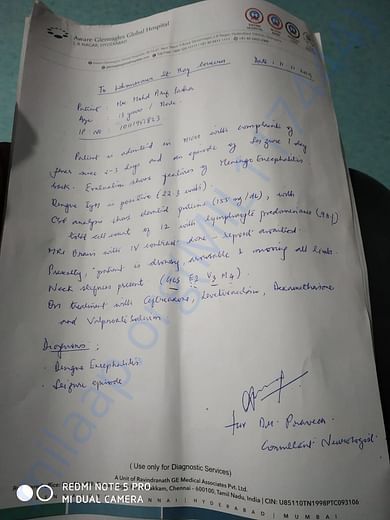 Aware Gleneagles Global Hospital
L.B. NAGAR, HYDERABAD
To Whomsoever It May Concern
Date :
Patient : Mr. Mohd
Age : 13 years / Male.
IP No :
Patient is admitted in MICU with complaints of
fever since 2-3 days and an episode of Seizure 1 day
back. Evaluation shows features of Meningo Encephalitis
Dengue IgM is positive (22.3 units).
CSF analysis shows elevated proteins (155 mg/dL), with
total cell count of 12 with lymphocyte predominance (98%)
MRI Brain with IV contrast done - report awaited.
Presently, patient is drowsy, arousable & moving all limbs.
Neck stiffness present (GCS E3 V3 M4).
On treatment with Ceftriaxone, Levetiracetam, Dexamethasone
and Valproate Sodium
Diagnosis :
- Dengue Encephalitis
- Seizure episode
for Dr. Praveen
Consultant Neurologist.
(Use only for Diagnostic Services)
A Unit of Ravindranath GE Medical Associates Pvt. Ltd.
Chennai - 600100, Tamil Nadu, India | CIN: U85110TN1998PTC093106
CHENNAI | HYDERABAD | MUMBAI
milaap.org
REDMI NOTE 5 PRO
MI DUAL CAMERA